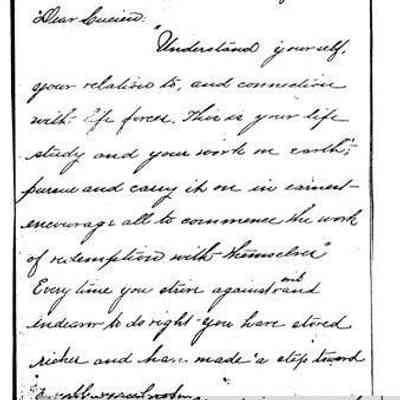 Dear Lucien:
"Understand yourself,
your relations to, and connection
with life forces. This is your life
study and your work on earth;
pursue and carry it on in earnest-
encourage all to commence the work
of redemption with themselves"
Every time you strive against evil and
endeavor to do right-you have stored
riches and have made a step toward